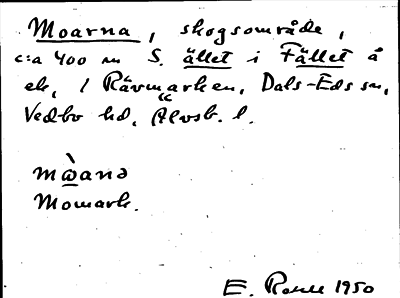 Moarna, skogsområde,
c:a 400 m S. ället i Fället å
ek, 1 Rävmarken, Dals-Eds sn,
Vedbo hd, Älvsb. l.
mὼanə
Momark.
E. 1950